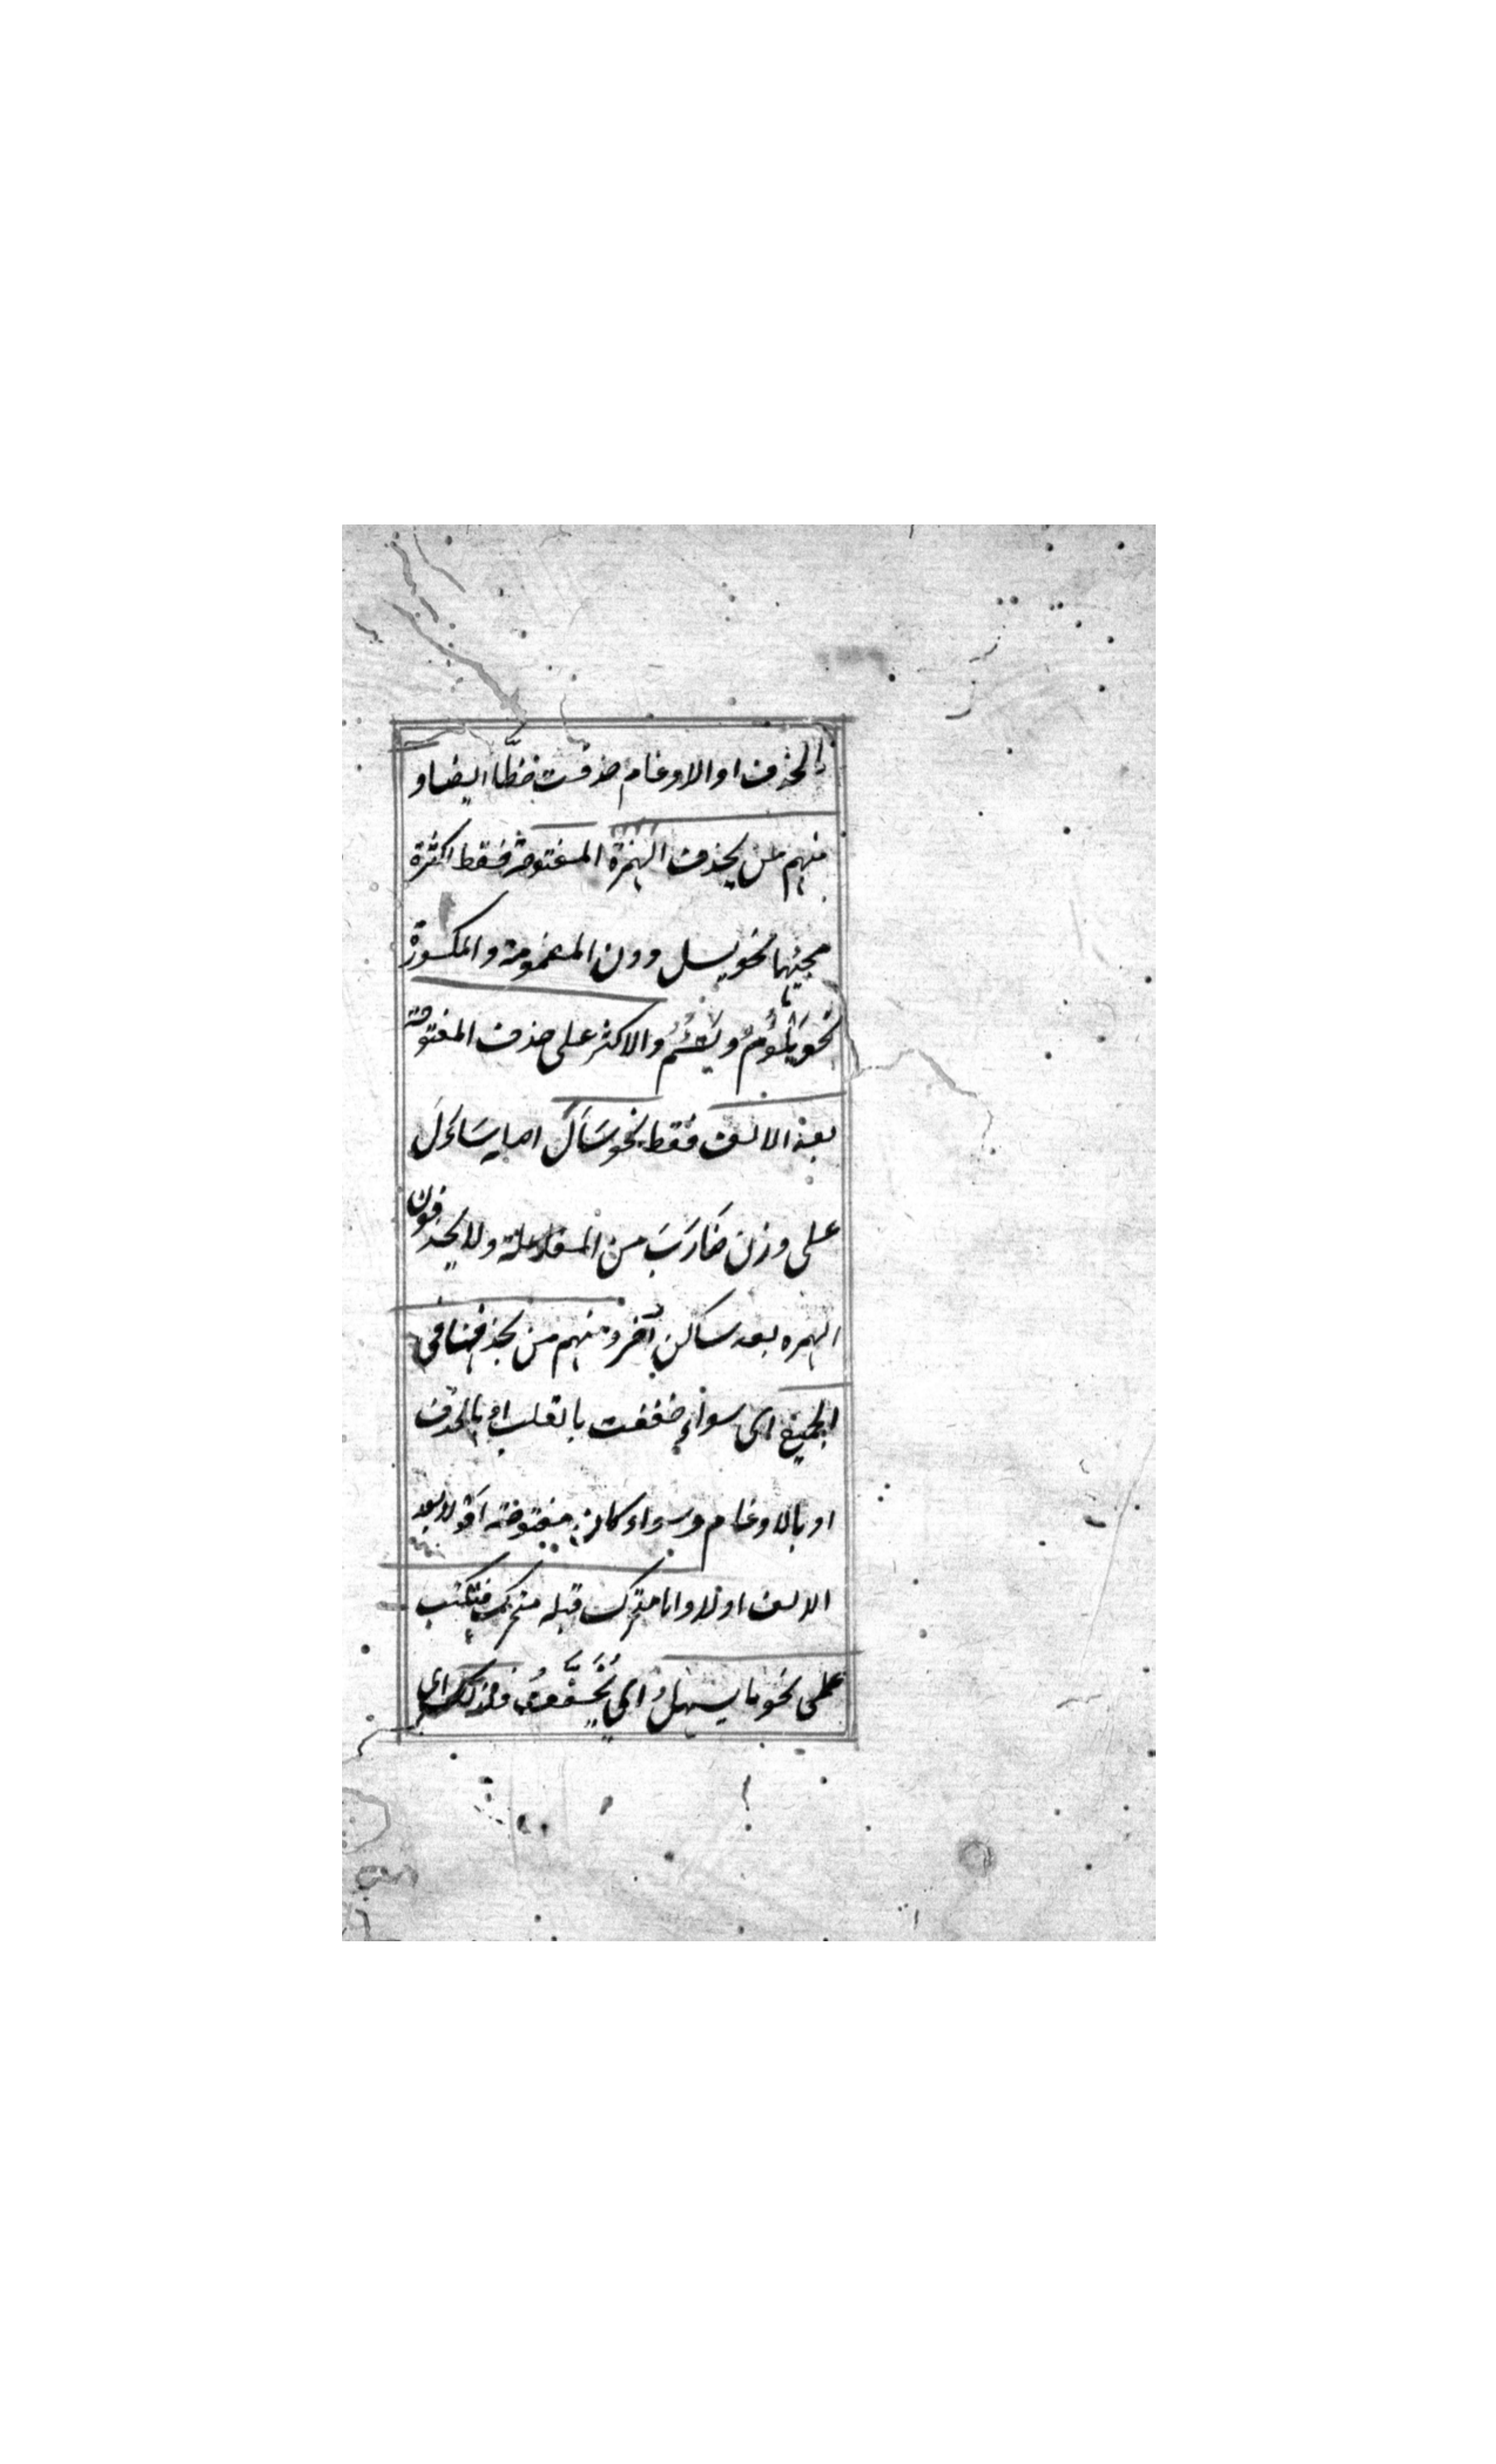 بالحذف او الادغام حذفت خطّا ايضا و
منهم من يحذف الهمزة المفتوحة فقط لكثرة
مجيئها نحو يسل دون المضمومة والمكسورة
نحو يَلْؤُمُ ويَسْئَمُ والاكثر على حذف المفتوحة
بعد الالف فقط نحو سَاَلَ اصله سَاءَلَ
على وزن ضَارَبَ من المفاعلة ولا يحذفون
الهمزه بعد ساكن آخر ومنهم من يحذفها فى
الجميع اى سواء خففت بالقلب او بالحذف
او بالادغام وسواء كانت مفتوحة اولا بعد
الالف اولا واما متحرك قبله متحرك فتكتب
على نحو ما يسهل اى يُخَفَّفُ فلذلك اى